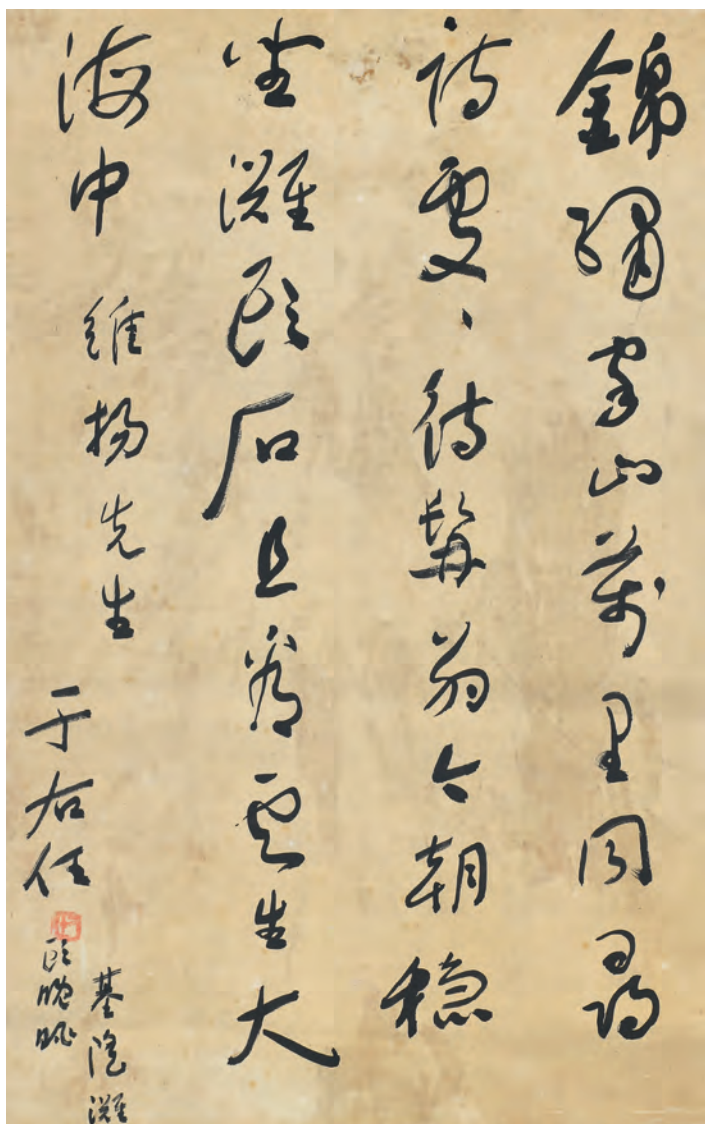 錦繡家山萬里同尋
詩處、待髯翁今朝穩
坐灘頭石且看雲生大
海中
維揚先生
于右任
基隆灘
頭晚眺